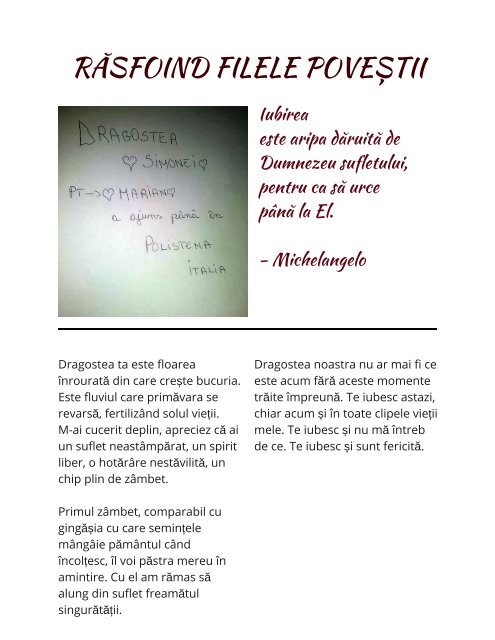 RĂSFOIND FILELE POVEȘTII
DRAGOSTEA
♡ SIMONEI ♡
PT -> ♡ MARIAN ♡
a ajuns până în
POLISTENA
ITALIA
Iubirea
este aripa dăruită de
Dumnezeu sufletului,
pentru ca să urce
până la El.
– Michelangelo
Dragostea ta este floarea
înrourată din care crește bucuria.
Este fluviul care primăvara se
revarsă, fertilizând solul vieții.
M-ai cucerit deplin, apreciez că ai
un suflet neastâmpărat, un spirit
liber, o hotărâre nestăvilită, un
chip plin de zâmbet.
Primul zâmbet, comparabil cu
gingășia cu care semințele
mângâie pământul când
încolțesc, îl voi păstra mereu în
amintire. Cu el am rămas să
alung din suflet freamătul
singurătății.
Dragostea noastra nu ar mai fi ce
este acum fără aceste momente
trăite împreună. Te iubesc astazi,
chiar acum și în toate clipele vieții
mele. Te iubesc și nu mă întreb
de ce. Te iubesc și sunt fericită.